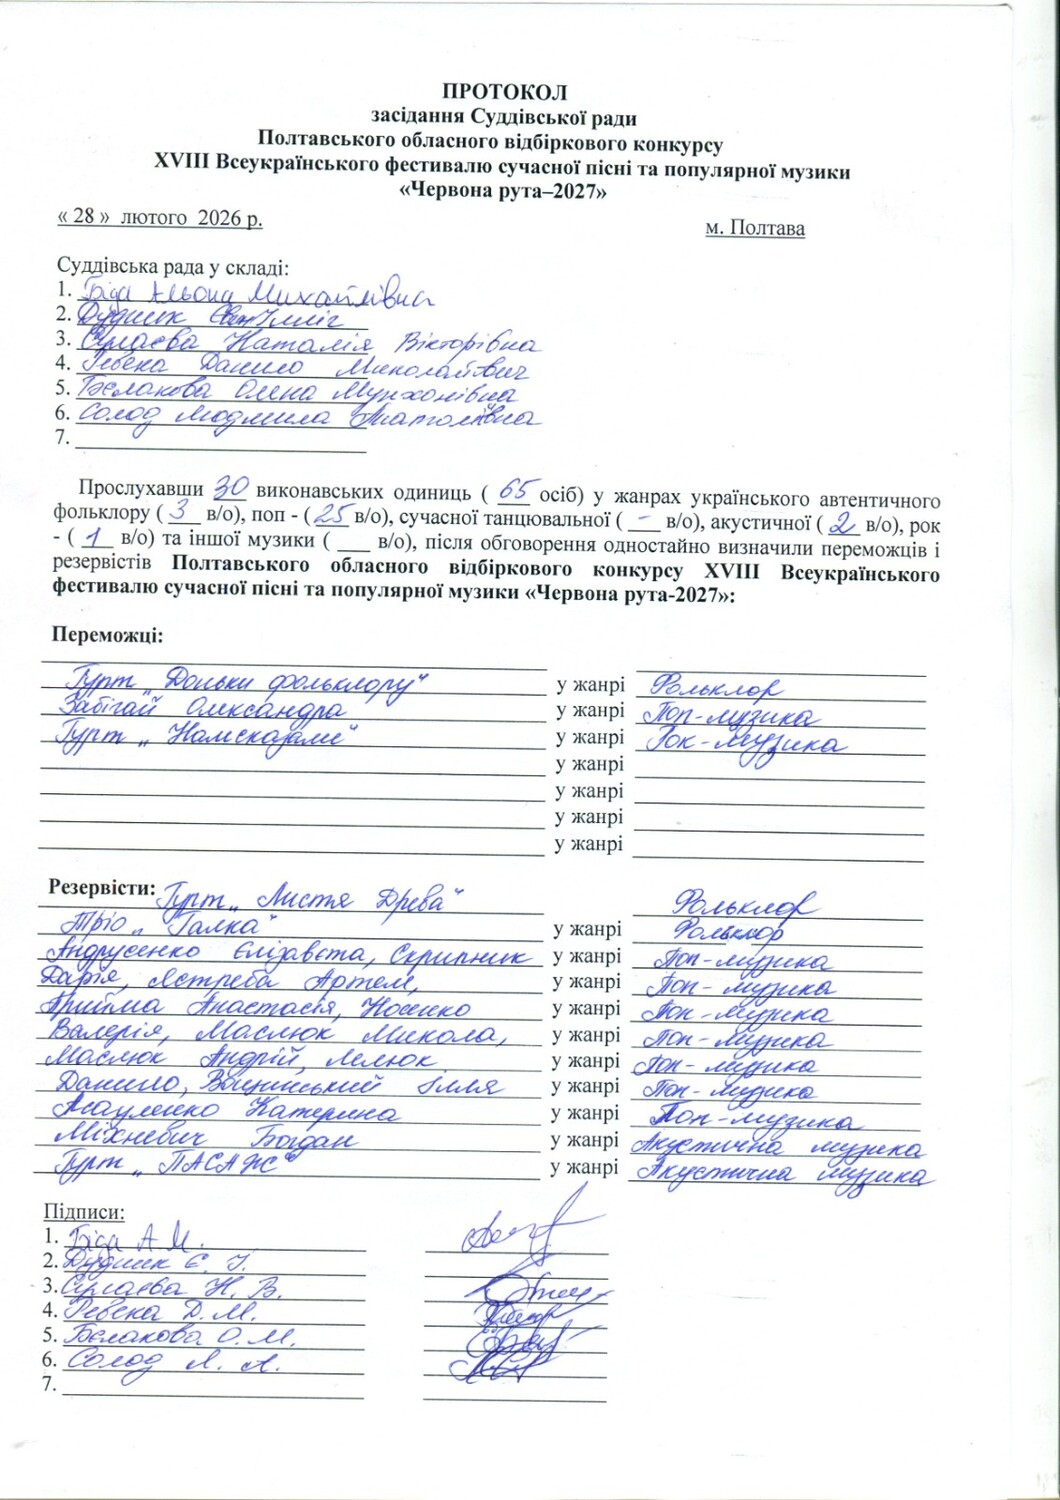 ПРОТОКОЛ
засідання Суддівської ради
Полтавського обласного відбіркового конкурсу
XVIII Всеукраїнського фестивалю сучасної пісні та популярної музики
«Червона рута–2027»
« 28 » лютого 2026 р.
м. Полтава
Суддівська рада у складі:
1. Біда Альона Михайлівна
2. Дудник
3. Наталія Вікторівна
4. Ревека Данило Миколайович
5. Бєлакова Олена
6. Солод Людмила Анатоліївна
7.
Прослухавши 30 виконавських одиниць ( 65 осіб) у жанрах українського автентичного
фольклору ( 3 в/о), поп - ( 25 в/о), сучасної танцювальної ( - в/о), акустичної ( 2 в/о), рок
- ( 1 в/о) та іншої музики ( ___ в/о), після обговорення одностайно визначили переможців і
резервістів Полтавського обласного відбіркового конкурсу XVIII Всеукраїнського
фестивалю сучасної пісні та популярної музики «Червона рута-2027»:
Переможці:
Гурт „Доньки фольклору“ у жанрі Фольклор
Забігай Олександра у жанрі Поп-музика
Гурт „Намсказали“ у жанрі Рок-музика
у жанрі
у жанрі
у жанрі
у жанрі
Резервісти: Гурт „Листя Древа“ Фольклор
Тріо „Галка“ у жанрі Фольклор
Андрусенко Єлізавєта, Скрипник у жанрі Поп-музика
Дар'я, Ястреба Артем, у жанрі Поп-музика
Прийма Анастасія, Носенко у жанрі Поп-музика
Валерія, Маслюк Микола, у жанрі Поп-музика
Маслюк Андрій, Лелюк у жанрі Поп-музика
Данило, Вощинський Ілля у жанрі Поп-музика
Асауленко Катерина у жанрі Поп-музика
Міхневич Богдан у жанрі Акустична музика
Гурт „ПАСАЖ“ у жанрі Акустична музика
Підписи:
1. Біда А.М.
2. Дудник Є. І.
3. Н. В.
4. Ревека Д.М.
5. Бєлакова О.М.
6. Солод Л. А.
7.